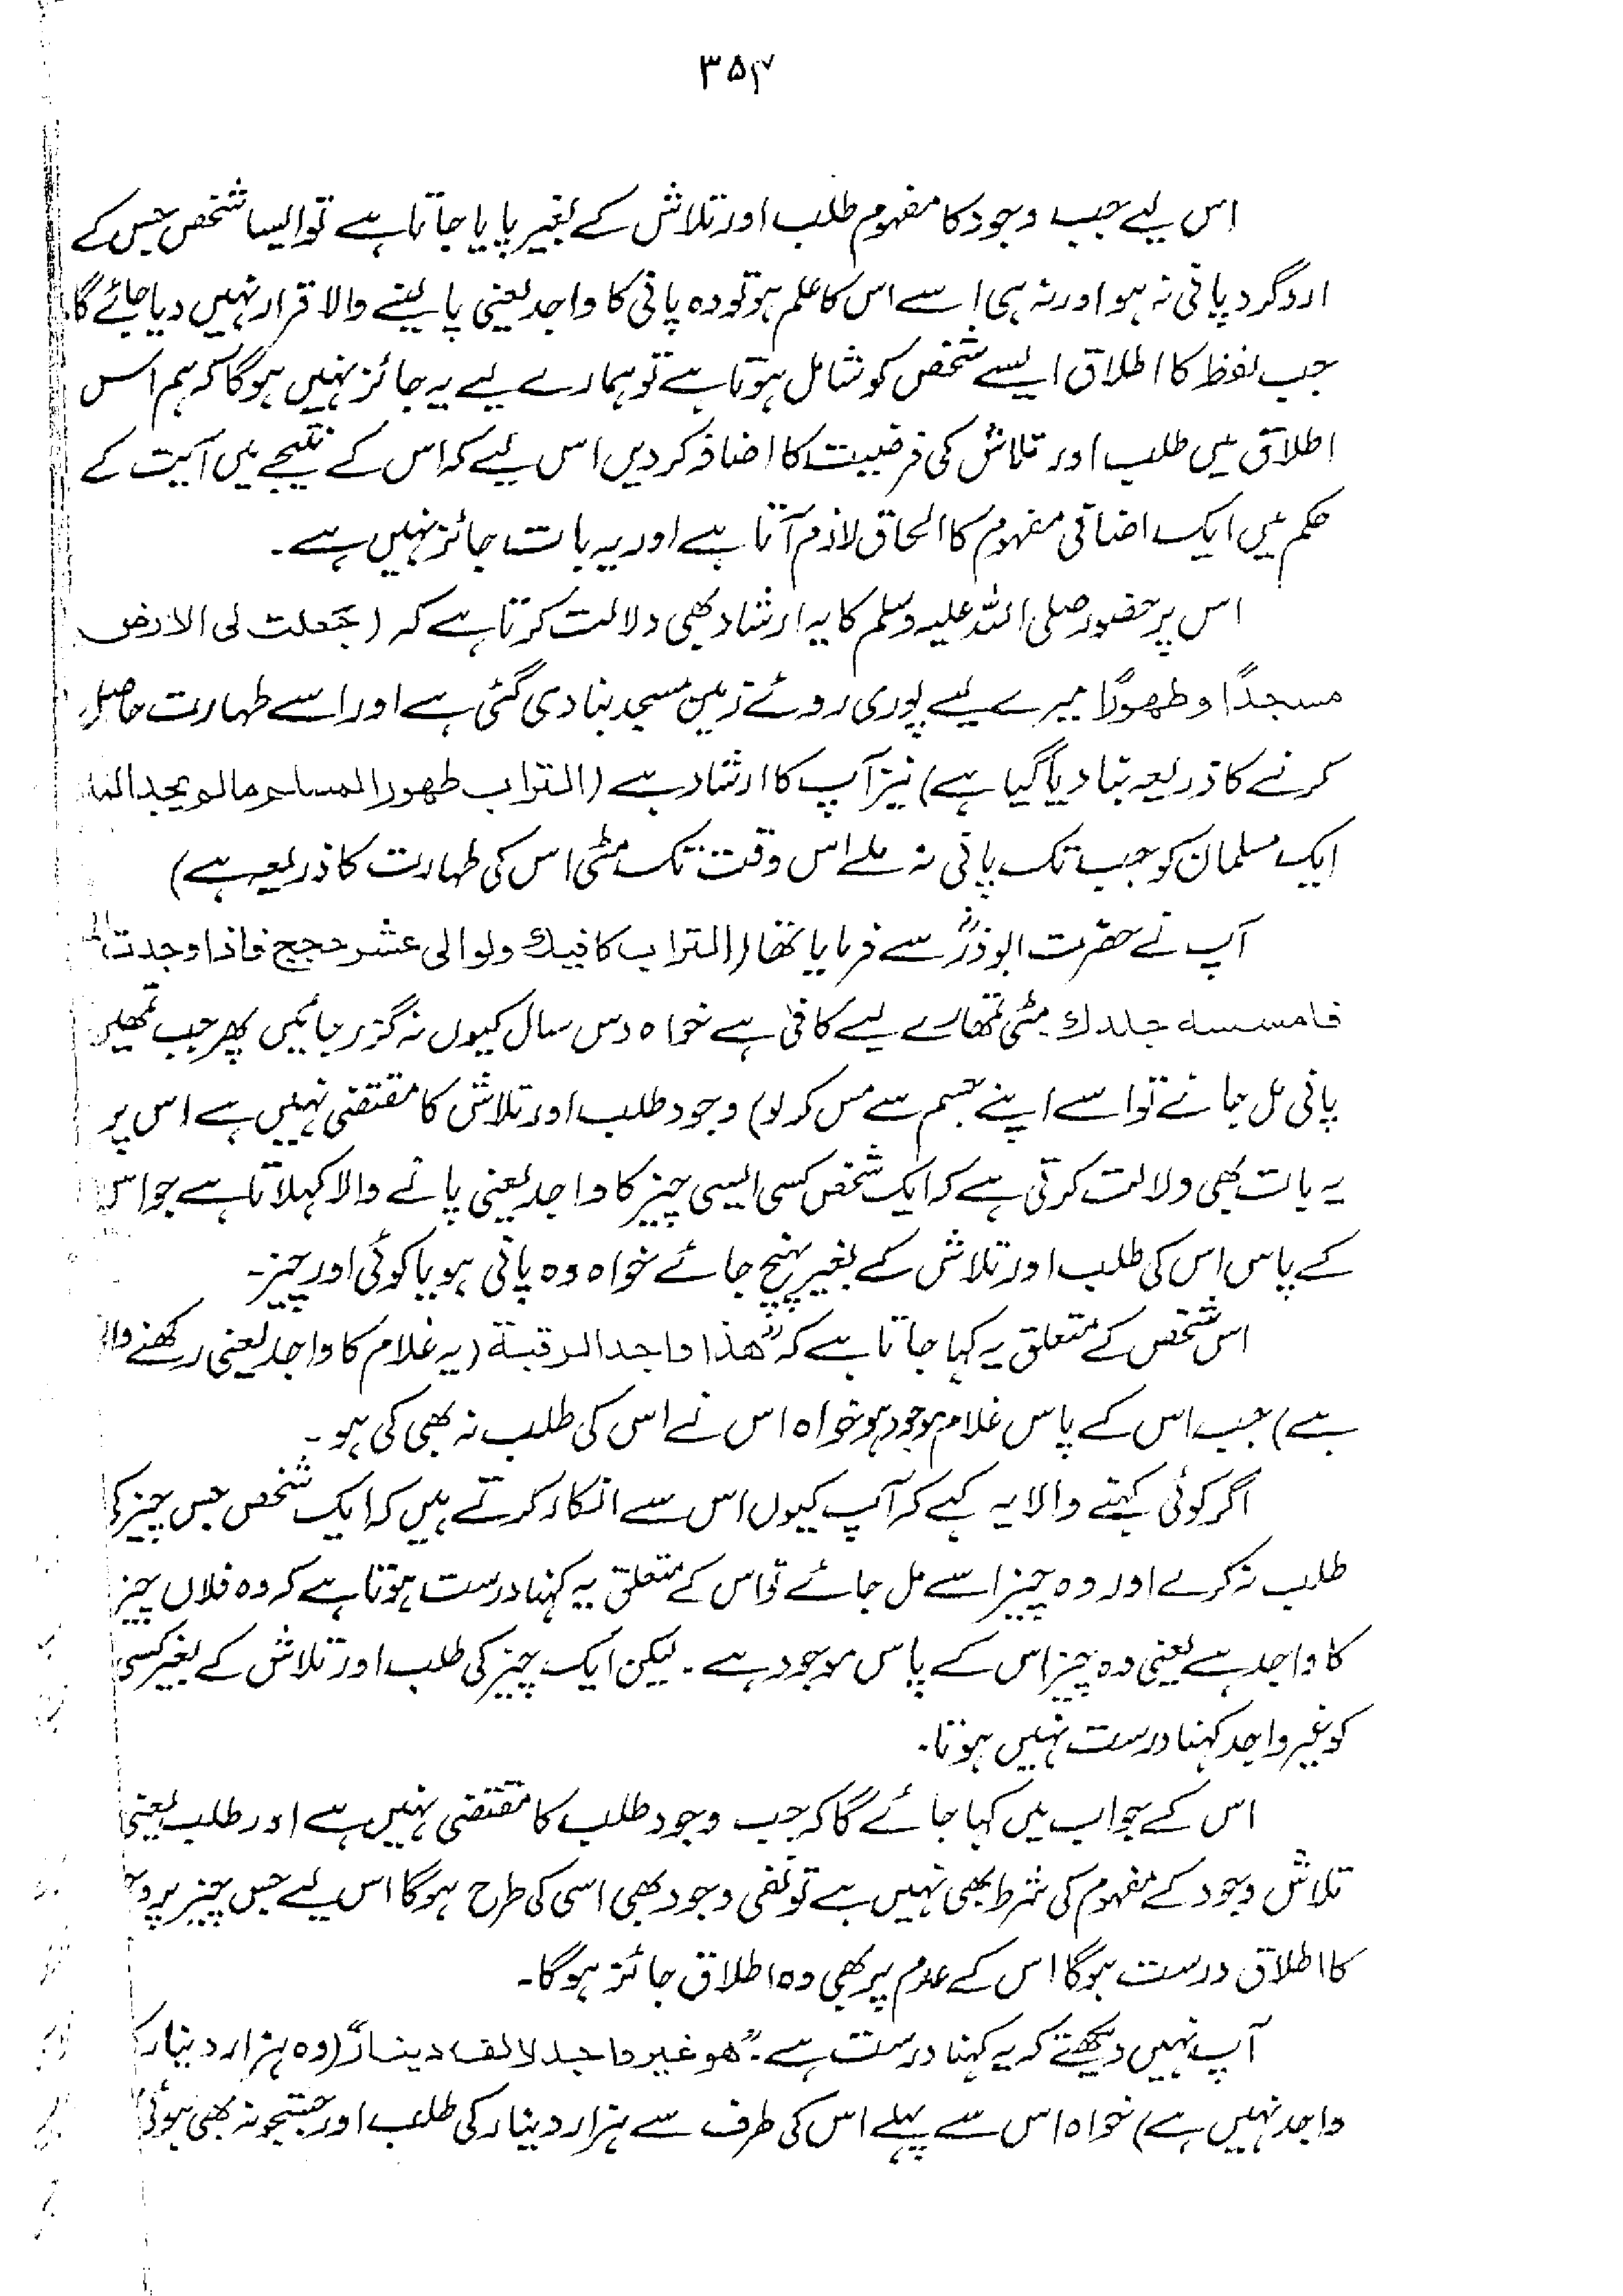 ۳۵۴
اس لیے جب وجود کا مفہوم طلب اور تلاش کے بغیر پایا جاتا ہے تو ایسا شخص جس کے
اردگرد پانی نہ ہو اور نہ ہی اسے اس کا علم ہو تو وہ پانی کا واجد یعنی پا لینے والا قرار نہیں دیا جائے گا۔
جب لفظ کا اطلاق ایسے شخص کو شامل ہوتا ہے تو ہمارے لیے یہ جائز نہیں ہوگا کہ ہم اس
اطلاق میں طلب اور تلاش کی فرضیت کا اضافہ کردیں اس لیے کہ اس کے نتیجے میں آیت کے
حکم میں ایک اضافی مفہوم کا الحاق لازم آتا ہے اور یہ بات جائز نہیں ہے۔
اس پر حضور صلی اللہ علیہ وسلم کا یہ ارشاد بھی دلالت کرتا ہے کہ (جُعلت لی الارض
مسجدًا وطھورًا میرے لیے پوری روئے زمین مسجد بنا دی گئی ہے اور اسے طہارت حاصل
کرنے کا ذریعہ بنا دیا گیا ہے) نیز آپ کا ارشاد ہے (التراب طھور المسلم مالم یجد الما
ایک مسلمان کو جب تک پانی نہ ملے اس وقت تک مٹی اس کی طہارت کا ذریعہ ہے)
آپ نے حضرت ابوذرؓ سے فرمایا تھا (التراب کافیك ولو الی عشر حجج فاذا وجدت
فامسسہ جلدك مٹی تمھارے لیے کافی ہے خواہ دس سال کیوں نہ گزر جائیں پھر جب تمھیں
پانی مل جائے تو اسے اپنے جسم سے مس کر لو) وجود طلب اور تلاش کا مقتضی نہیں ہے اس پر
یہ بات بھی دلالت کرتی ہے کہ ایک شخص کسی ایسی چیز کا واجد یعنی پانے والا کہلاتا ہے جو اس
کے پاس اس کی طلب اور تلاش کے بغیر پہنچ جائے خواہ وہ پانی ہو یا کوئی اور چیز۔
اس شخص کے متعلق یہ کہا جاتا ہے کہ "ھذا واجد الرقبة (یہ غلام کا واجد یعنی رکھنے والا
ہے) جب اس کے پاس غلام موجود ہو خواہ اس نے اس کی طلب نہ بھی کی ہو۔
اگر کوئی کہنے والا یہ کہے کہ آپ کیوں اس سے انکار کرتے ہیں کہ ایک شخص جس چیز کی
طلب نہ کرے اور وہ چیز اسے مل جائے تو اس کے متعلق یہ کہنا درست ہوتا ہے کہ وہ فلاں چیز
کا واجد ہے یعنی وہ چیز اس کے پاس موجود ہے۔ لیکن ایک چیز کی طلب اور تلاش کے بغیر کسی
کو غیر واجد کہنا درست نہیں ہوتا۔
اس کے جواب میں کہا جائے گا کہ جب وجود طلب کا مقتضی نہیں ہے اور طلب یعنی
تلاش وجود کے مفہوم کی شرط بھی نہیں ہے تو نفی وجود بھی اسی کی طرح ہوگا اس لیے جس چیز پر
کا اطلاق درست ہوگا اس کے عدم پر بھی وہ اطلاق جائز ہوگا۔
آپ نہیں دیکھتے کہ یہ کہنا درست ہے۔ "ھو غیر واجد لالف دینار" (وہ ہزار دینار کا
واجد نہیں ہے) خواہ اس سے پہلے اس کی طرف سے ہزار دینار کی طلب اور جستجو نہ بھی ہوئی